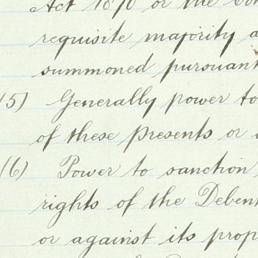 Act 1870 or the
requisite majority a
summoned pursuant
(5) Generally power to
of these presents or
(6) Power to sanction
rights of the Deben
or against its prop